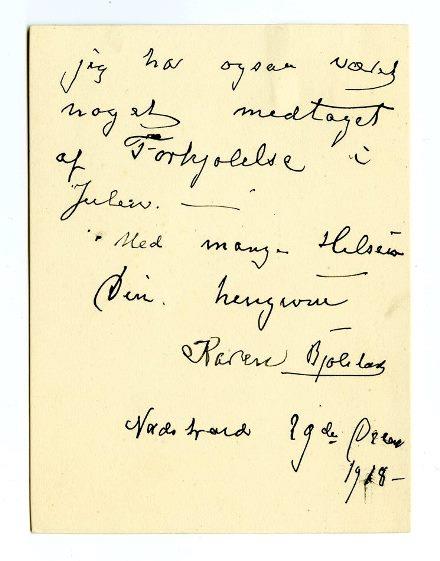 jeg har ogsaa været
noget medtaget
af Forkjølelse i
Julen. —
Med mange Hilsen
Din hengivne
Karen Bjølstad
Nordstrand 29de Dec
1918-